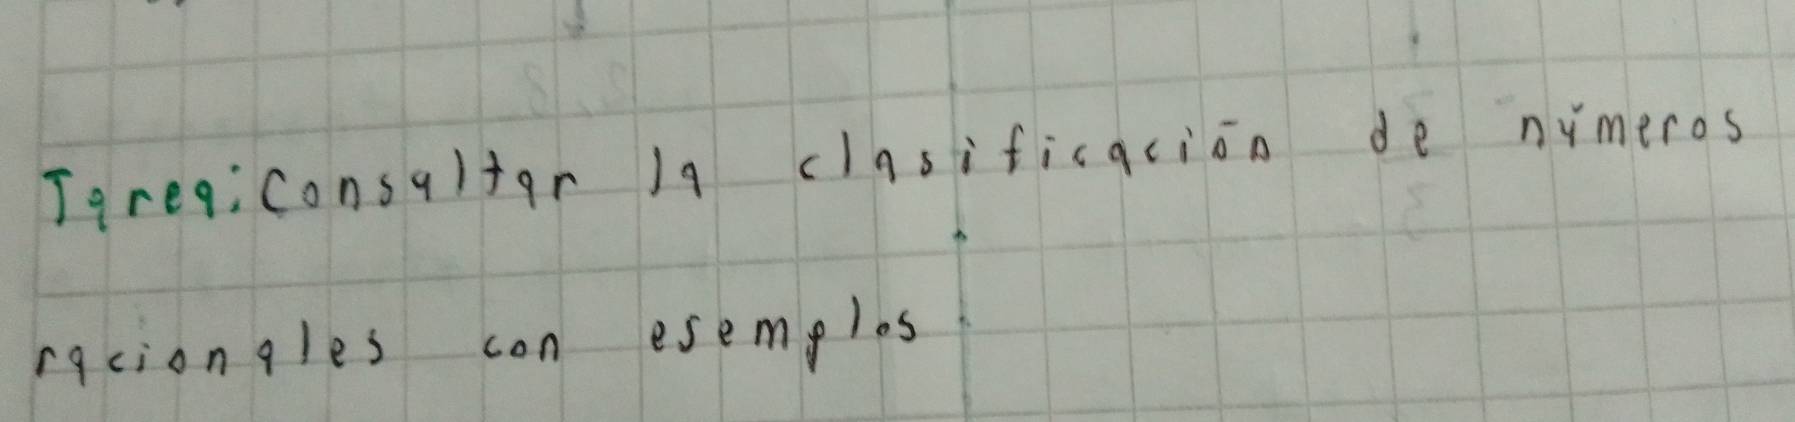 Tarea: Consultar la clasificación de números
racionales con esemplos